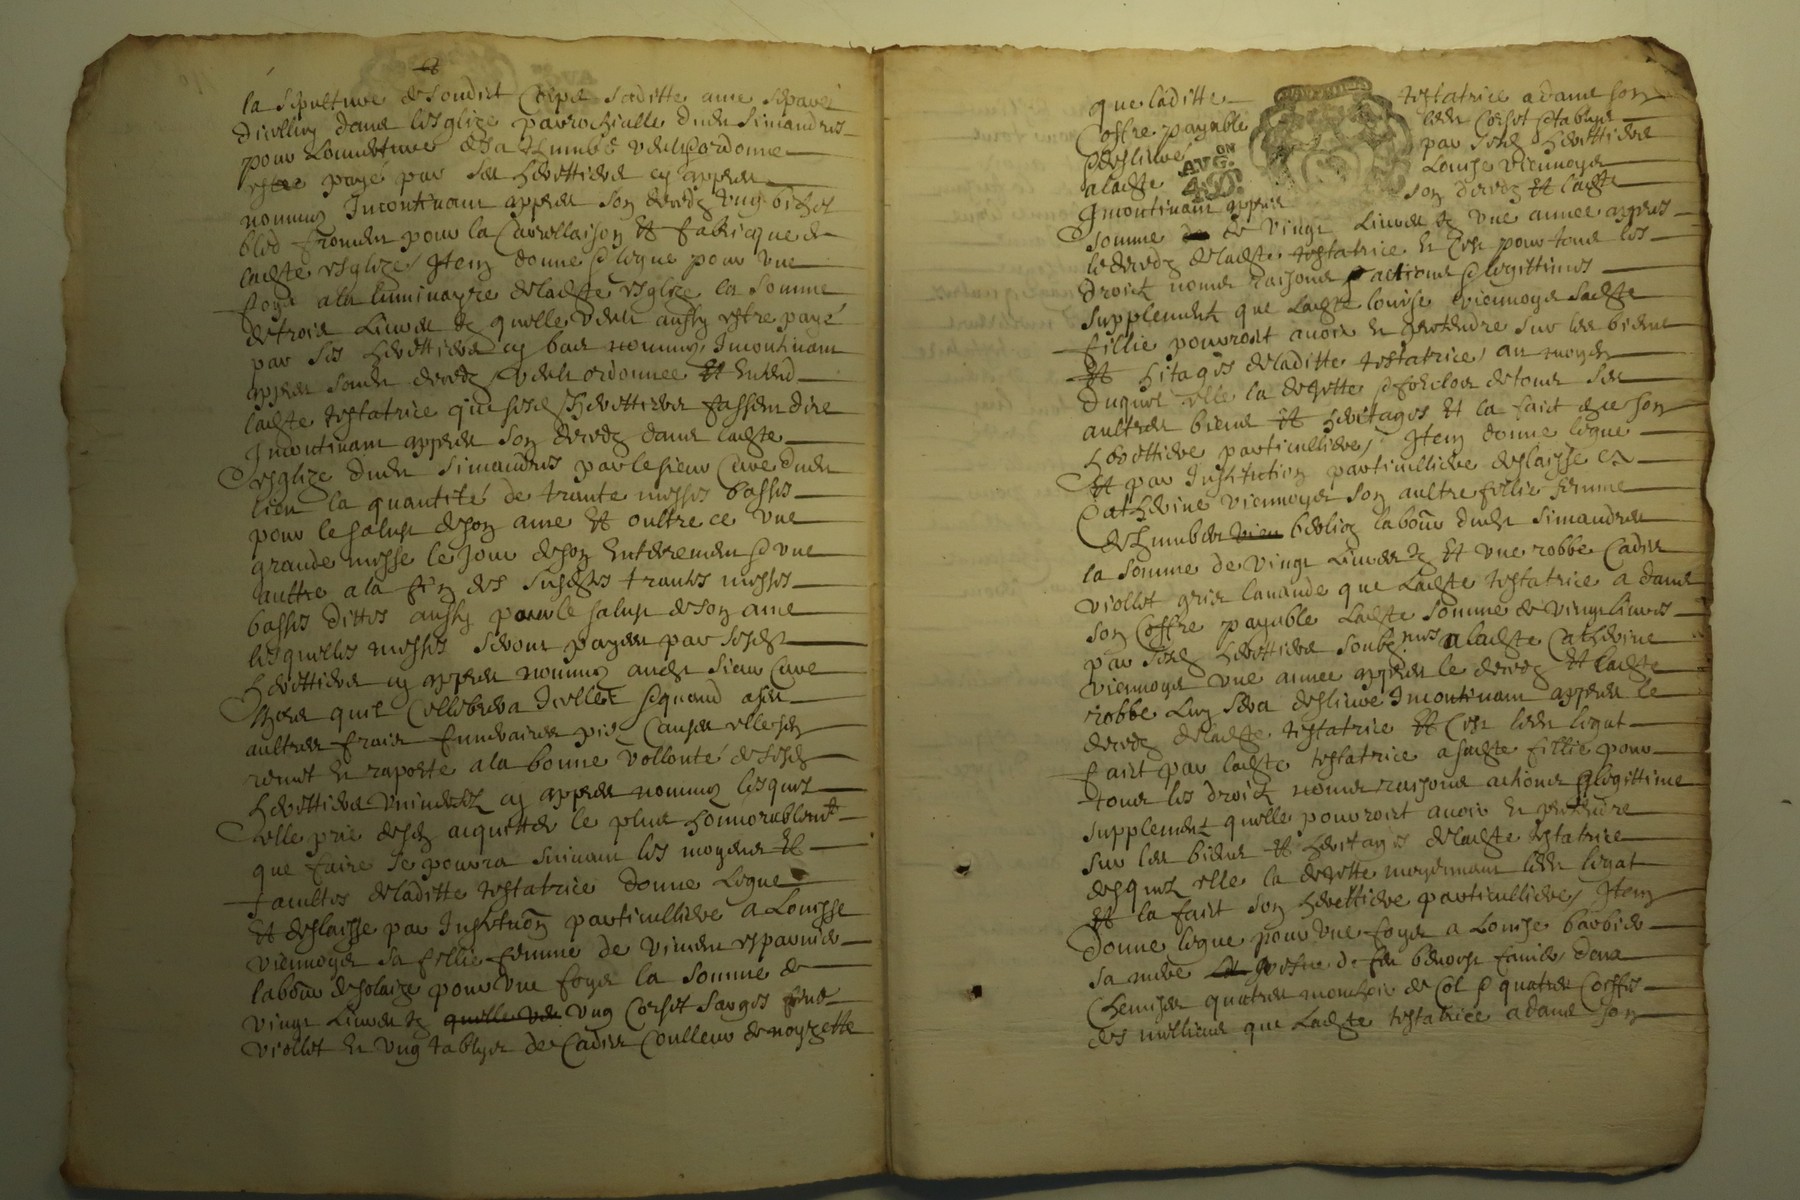 la sepulture de son dict corps sa ditte ame separée
d'icelluy dans l'esglize parrochialle dudit Simandres
pour l'ouverture de sa tumbe veult et ordonne
estre payé par ses herettiers cy appres
nommes Incontinant appres son decedz ung bichet
bled froment pour la et fabricque de
ladte esglize Item donne et legue pour une
foys a la luminayre de ladte esglize la somme
de trois livres tz quelle veult aussy estre payé
par ses herettiers cy bas nommes Incontinant
appres son dit decedz veult ordonne et entend
ladte testatrice que sesdz herettiers fassent dire
Incontinant appres son decedz dans ladte
esglize dudit Simandres par le sieur Cure dudit
lieu la quantité de trante messes basses
pour le salut de son ame et oultre ce une
grande messe le jour de son enterement et une
aultre a la fin des susdtes trantes messes
basses dittes aussy pour le salut de son ame
lesquelles messes seront payees par sesdz
herettiers cy appres nommes audit sieur Cure
quil cellebrera Icelles et quand a ses
aultres frais funeraires pies causes elle sen
remet en raporte a la bonne vollonté de sesdz
herettiers cy appres nommes lesquels
elle prie de sen acquitter le plus honnorablemt
que faire se pourra suivant les moyens et
facultes de laditte testatrice donne legue
et deslaisse par Institution particulliere a Louisse
Viennoys sa fillie femme de Vincent
labour de pour une foys la somme de
vingt livres tz ung corset sarges
viollet et ung tablyer de Cadis coulleur de noyzette
que laditte testatrice a dans son
coffre payable lesdt corset et tablyer
et deslivré par sesdz herettiers
a ladte Louise Viennoys
Incontinant appres son decedz et ladte
somme de vingt livres tz une annee appres
le decedz de ladte testatrice et c'est pour tous les
droictz noms raisons actions et legittimes
supplement que ladte Louise Viennoys sadte
fillie pourroit avoir et pretendre sur les biens
et hitages de laditte testatrice au moyen
duquel elle la dejette et forclos de tous ses
aultres biens et heritages et la faict de son
herettiere particulliere Item donne legue
et par Institution particulliere deslaisse a
Catherine Viennoys son aultre fillie femme
d'Humbert labour dudit Simandres
la somme de vingt livres tz et une robbe Cadis
viollet gris lavande que ladte testatrice a dans
son coffre payable ladte somme de vingt livres
par sesdz herettiers a ladte Catherine
Viennoys une annee appres le decedz et ladte
robbe luy sera deslivré Incontinant appres le
decedz de ladte testatrice et c'est ledit legat
faict par ladte testatrice a sadte fillie pour
tous les droictz noms raisons actions et legittime
supplement quelle pourroit avoir et pretendre
sur les biens et heritages de ladte testatrice
desquels elle la dejette moyennant ledit legat
et la faict son herettiere particulliere Item
donne legue pour une foys a Louise Barbier
sa mere vefve de feu Benoist deux
chemises quatres mouchoir de col et quatres coiffes
des millieurs que ladte testatrice a dans son
AVG.ON